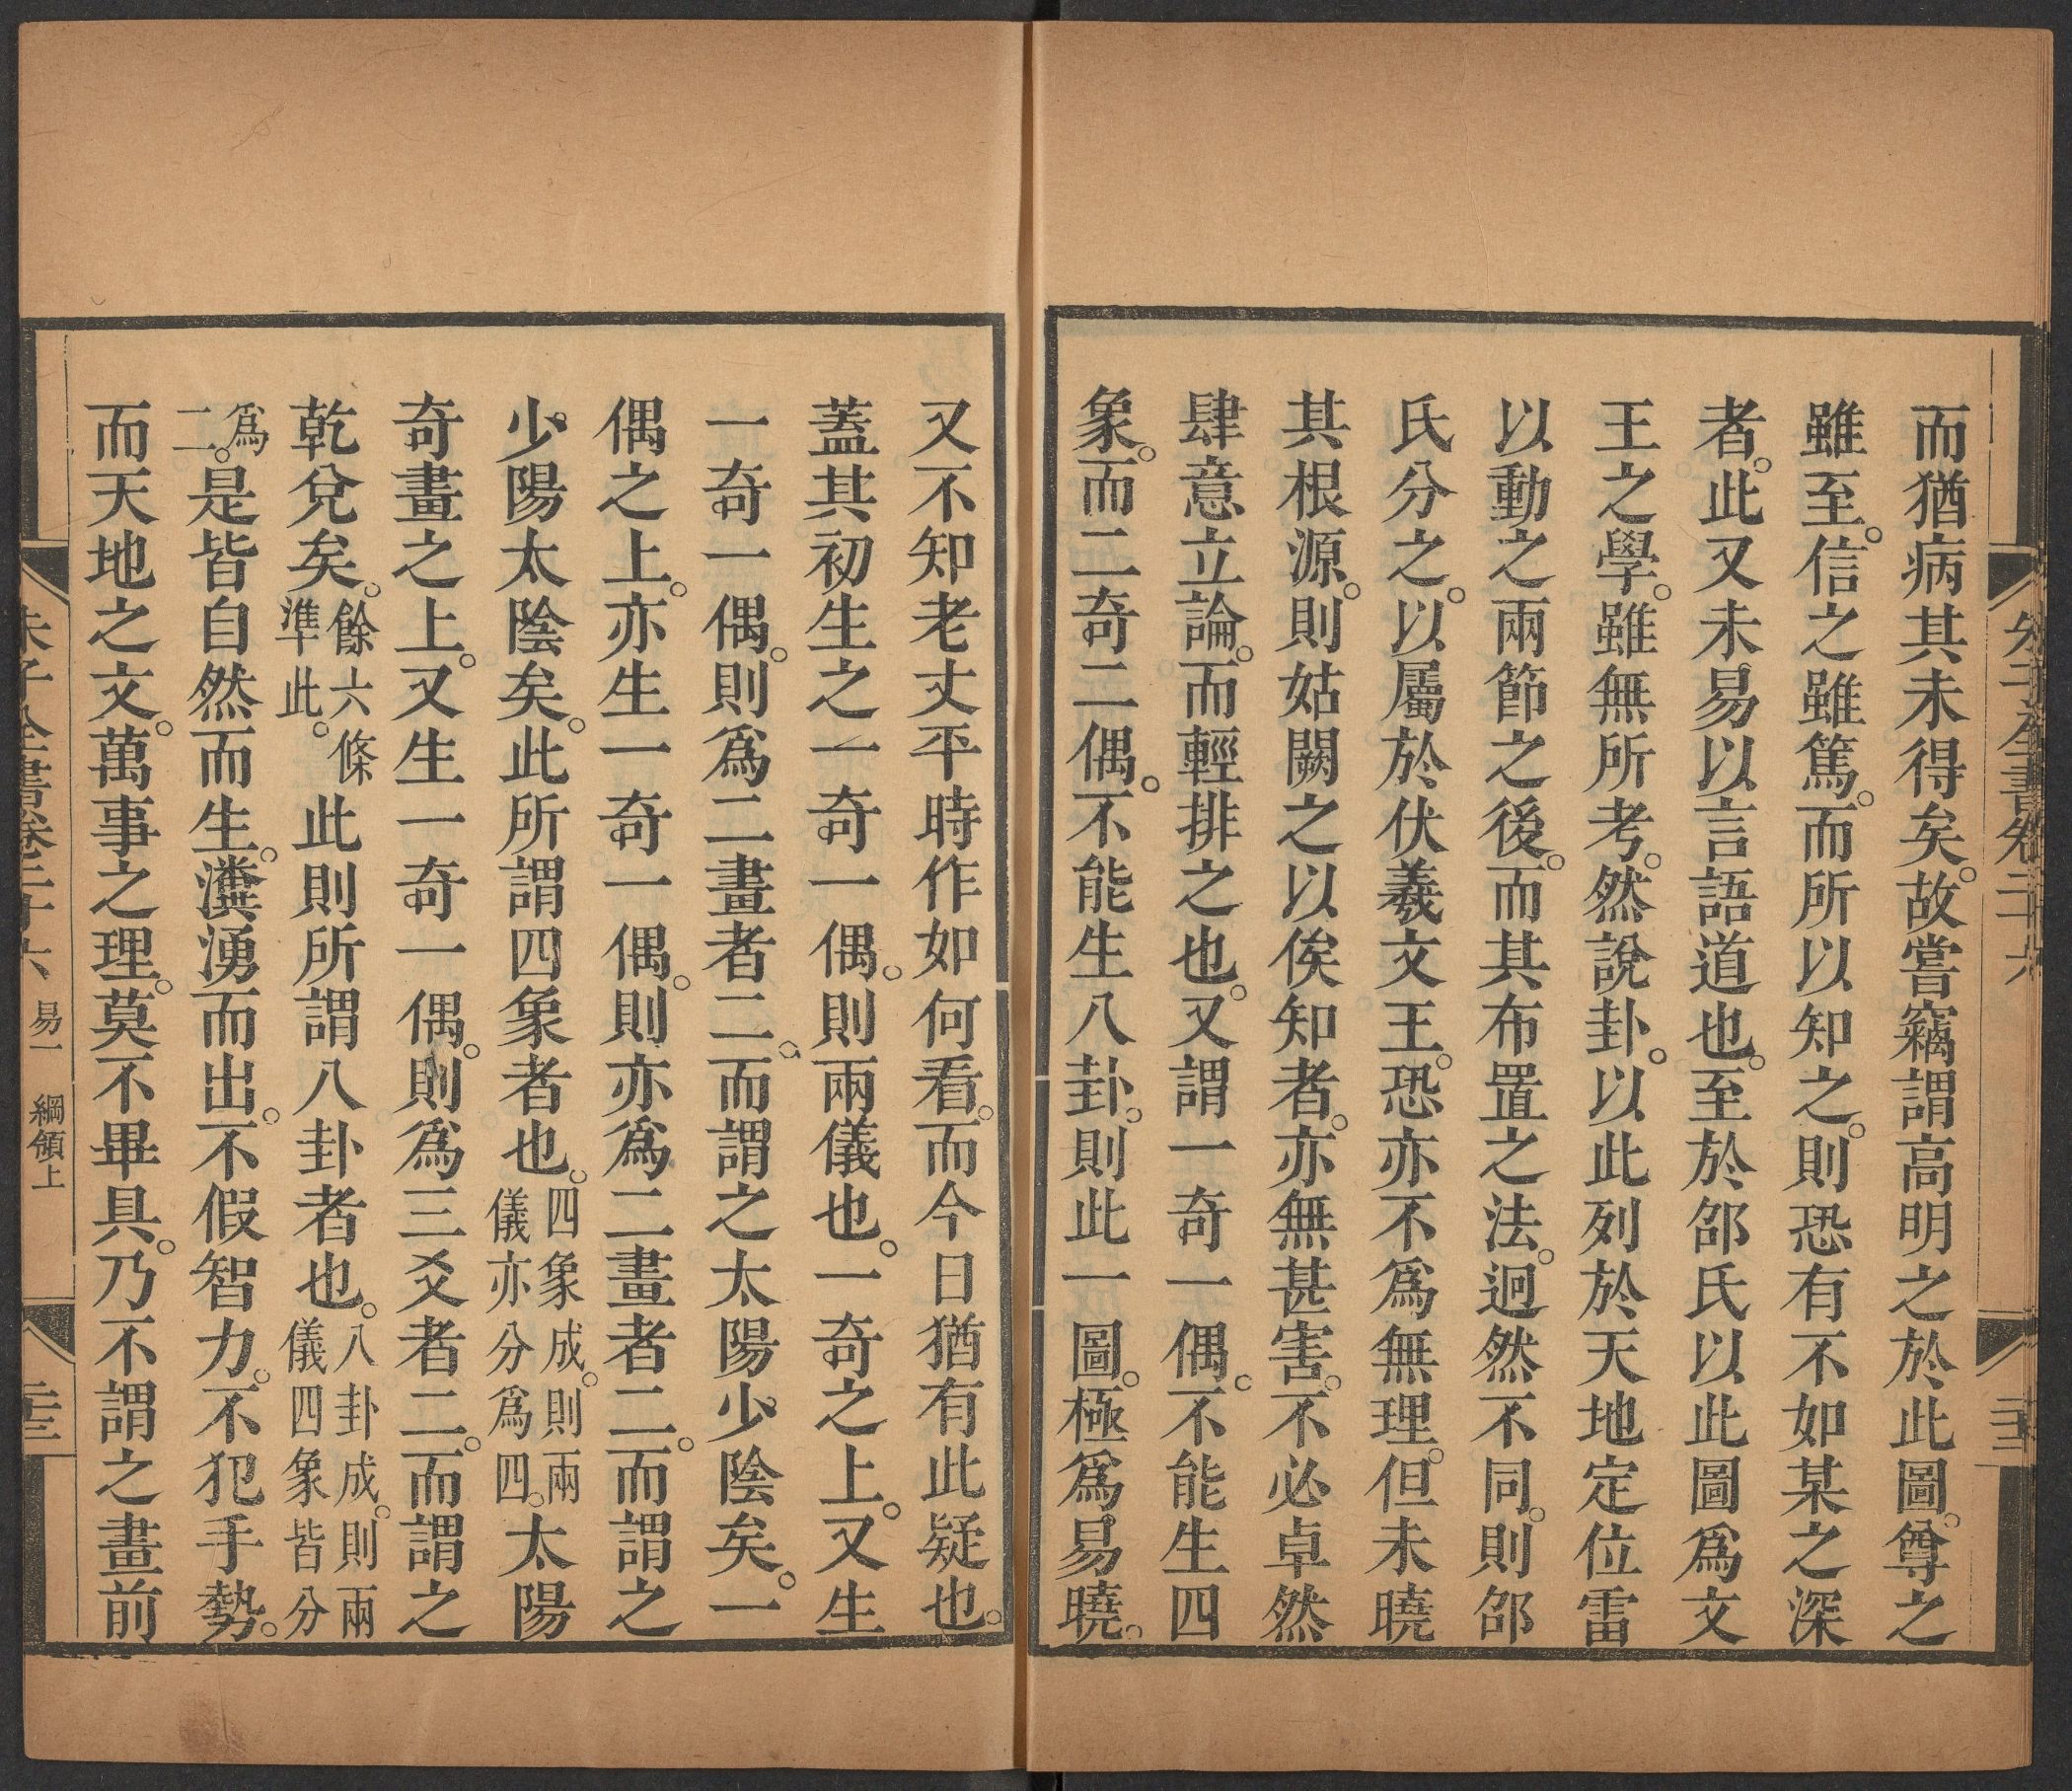 而猶病其未得矣。故嘗竊謂高明之於此圖。尊之
雖至。信之雖篤。而所以知之。則恐有不如某之深
者。此又未易以言語道也。至於邵氏以此圖爲文
王之學。雖無所考。然說卦。以此列於天地定位雷
以動之兩節之後。而其布置之法。迥然不同。則邵
氏分之。以屬於伏羲文王。恐亦不爲無理。但未曉
其根源。則姑闕之以俟知者。亦無甚害。不必卓然
肆意立論。而輕排之也。又謂一奇一偶。不能生四
象。而二奇二偶。不能生八卦。則此一圖。極爲易曉。
又不知老丈平時作如何看。而今日猶有此疑也。
蓋其初生之一奇一偶。則兩儀也。一奇之上。又生
一奇一偶。則爲二畫者二。而謂之太陽少陰矣。一
偶之上。亦生一奇一偶。則亦爲二畫者二。而謂之
少陽太陰矣。此所謂四象者也。四象成。則兩儀亦分爲四。太陽
奇畫之上。又生一奇一偶。則爲三爻者二。而謂之
乾兌矣。餘六條準此。此則所謂八卦者也。八卦成。則兩儀四象皆分
爲二。是皆自然而生。瀵湧而出。不假智力。不犯手勢。
而天地之文。萬事之理。莫不畢具。乃不謂之畫前
朱子全書卷二十六 易一 綱領上